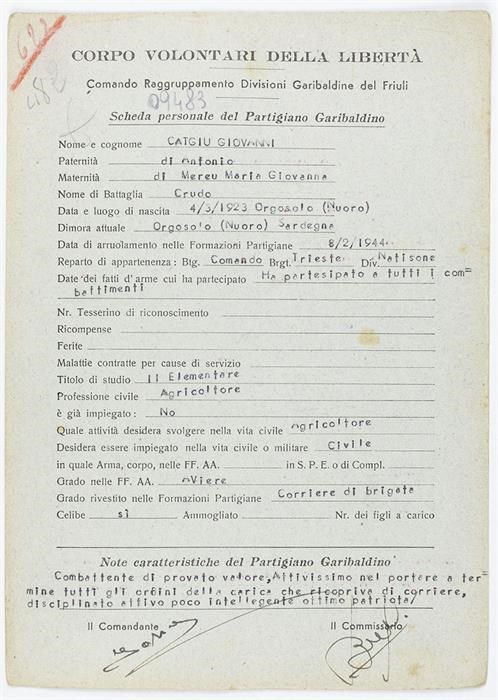 622
CORPO VOLONTARI DELLA LIBERTÀ
Comando Raggruppamento Divisioni Garibaldine del Friuli
09483
Scheda personale del Partigiano Garibaldino
Nome e cognome CATGIU GIOVANNI
Paternità di Antonio
Maternità di Mereu Maria Giovanna
Nome di Battaglia Crudo
Data e luogo di nascita 4/3/1923 Orgosolo (Nuoro)
Dimora attuale Orgosolo (Nuoro) Sardegna
Data di arruolamento nelle Formazioni Partigiane 8/2/1944
Reparto di appartenenza: Btg. Comando Brgt. Trieste Div. Natisone
Date dei fatti d'arme cui ha partecipato Ha partesipato a tutti i com=
battimenti
Nr. Tesserino di riconoscimento
Ricompense
Ferite
Malattie contratte per cause di servizio
Titolo di studio II Elementare
Professione civile Agricoltore
è già impiegato: No
Quale attività desidera svolgere nella vita civile Agricoltore
Desidera essere impiegato nella vita civile o militare Civile
in quale Arma, corpo, nelle FF. AA. in S. P. E. o di Compl.
Grado nelle FF. AA. AViere
Grado rivestito nelle Formazioni Partigiane Corriere di brigata
Celibe sì Ammogliato Nr. dei figli a carico
Note caratteristiche del Partigiano Garibaldino
Combattente di provato valore, Attivissimo nel portare a ter=
mine tutti gli ordini della carica che ricopriva di corriere,
disciplinato attivo poco intellegente ottimo patriota/
Il Comandante Il Commissario